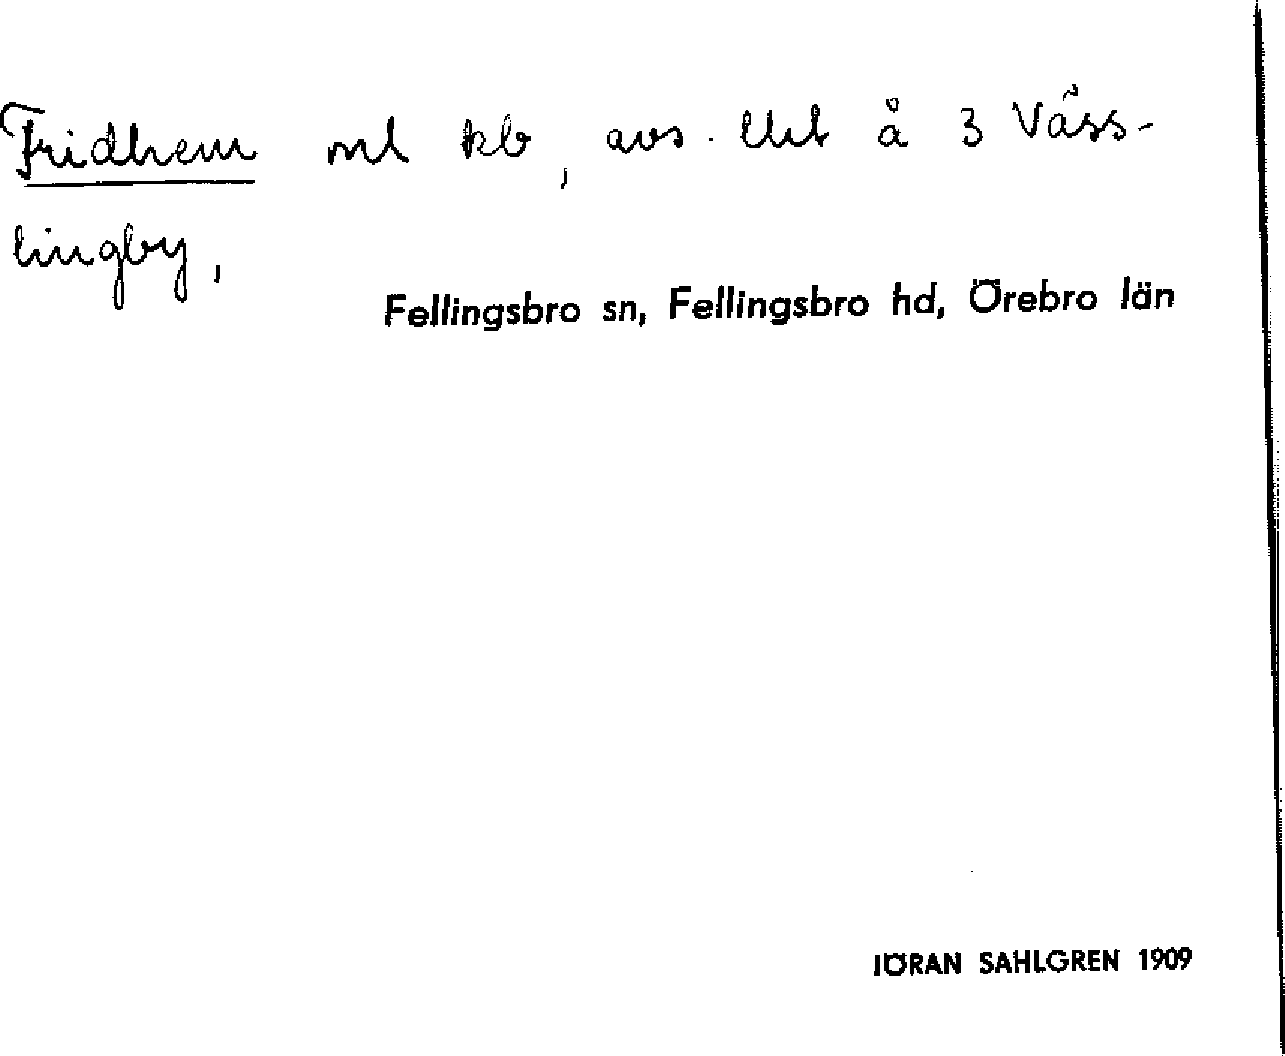 Fridhem enl kb, avs. lht å 3 Väss-
lingby,
Fellingsbro sn, Fellingsbro hd, Örebro län
JÖRAN SAHLGREN 1909